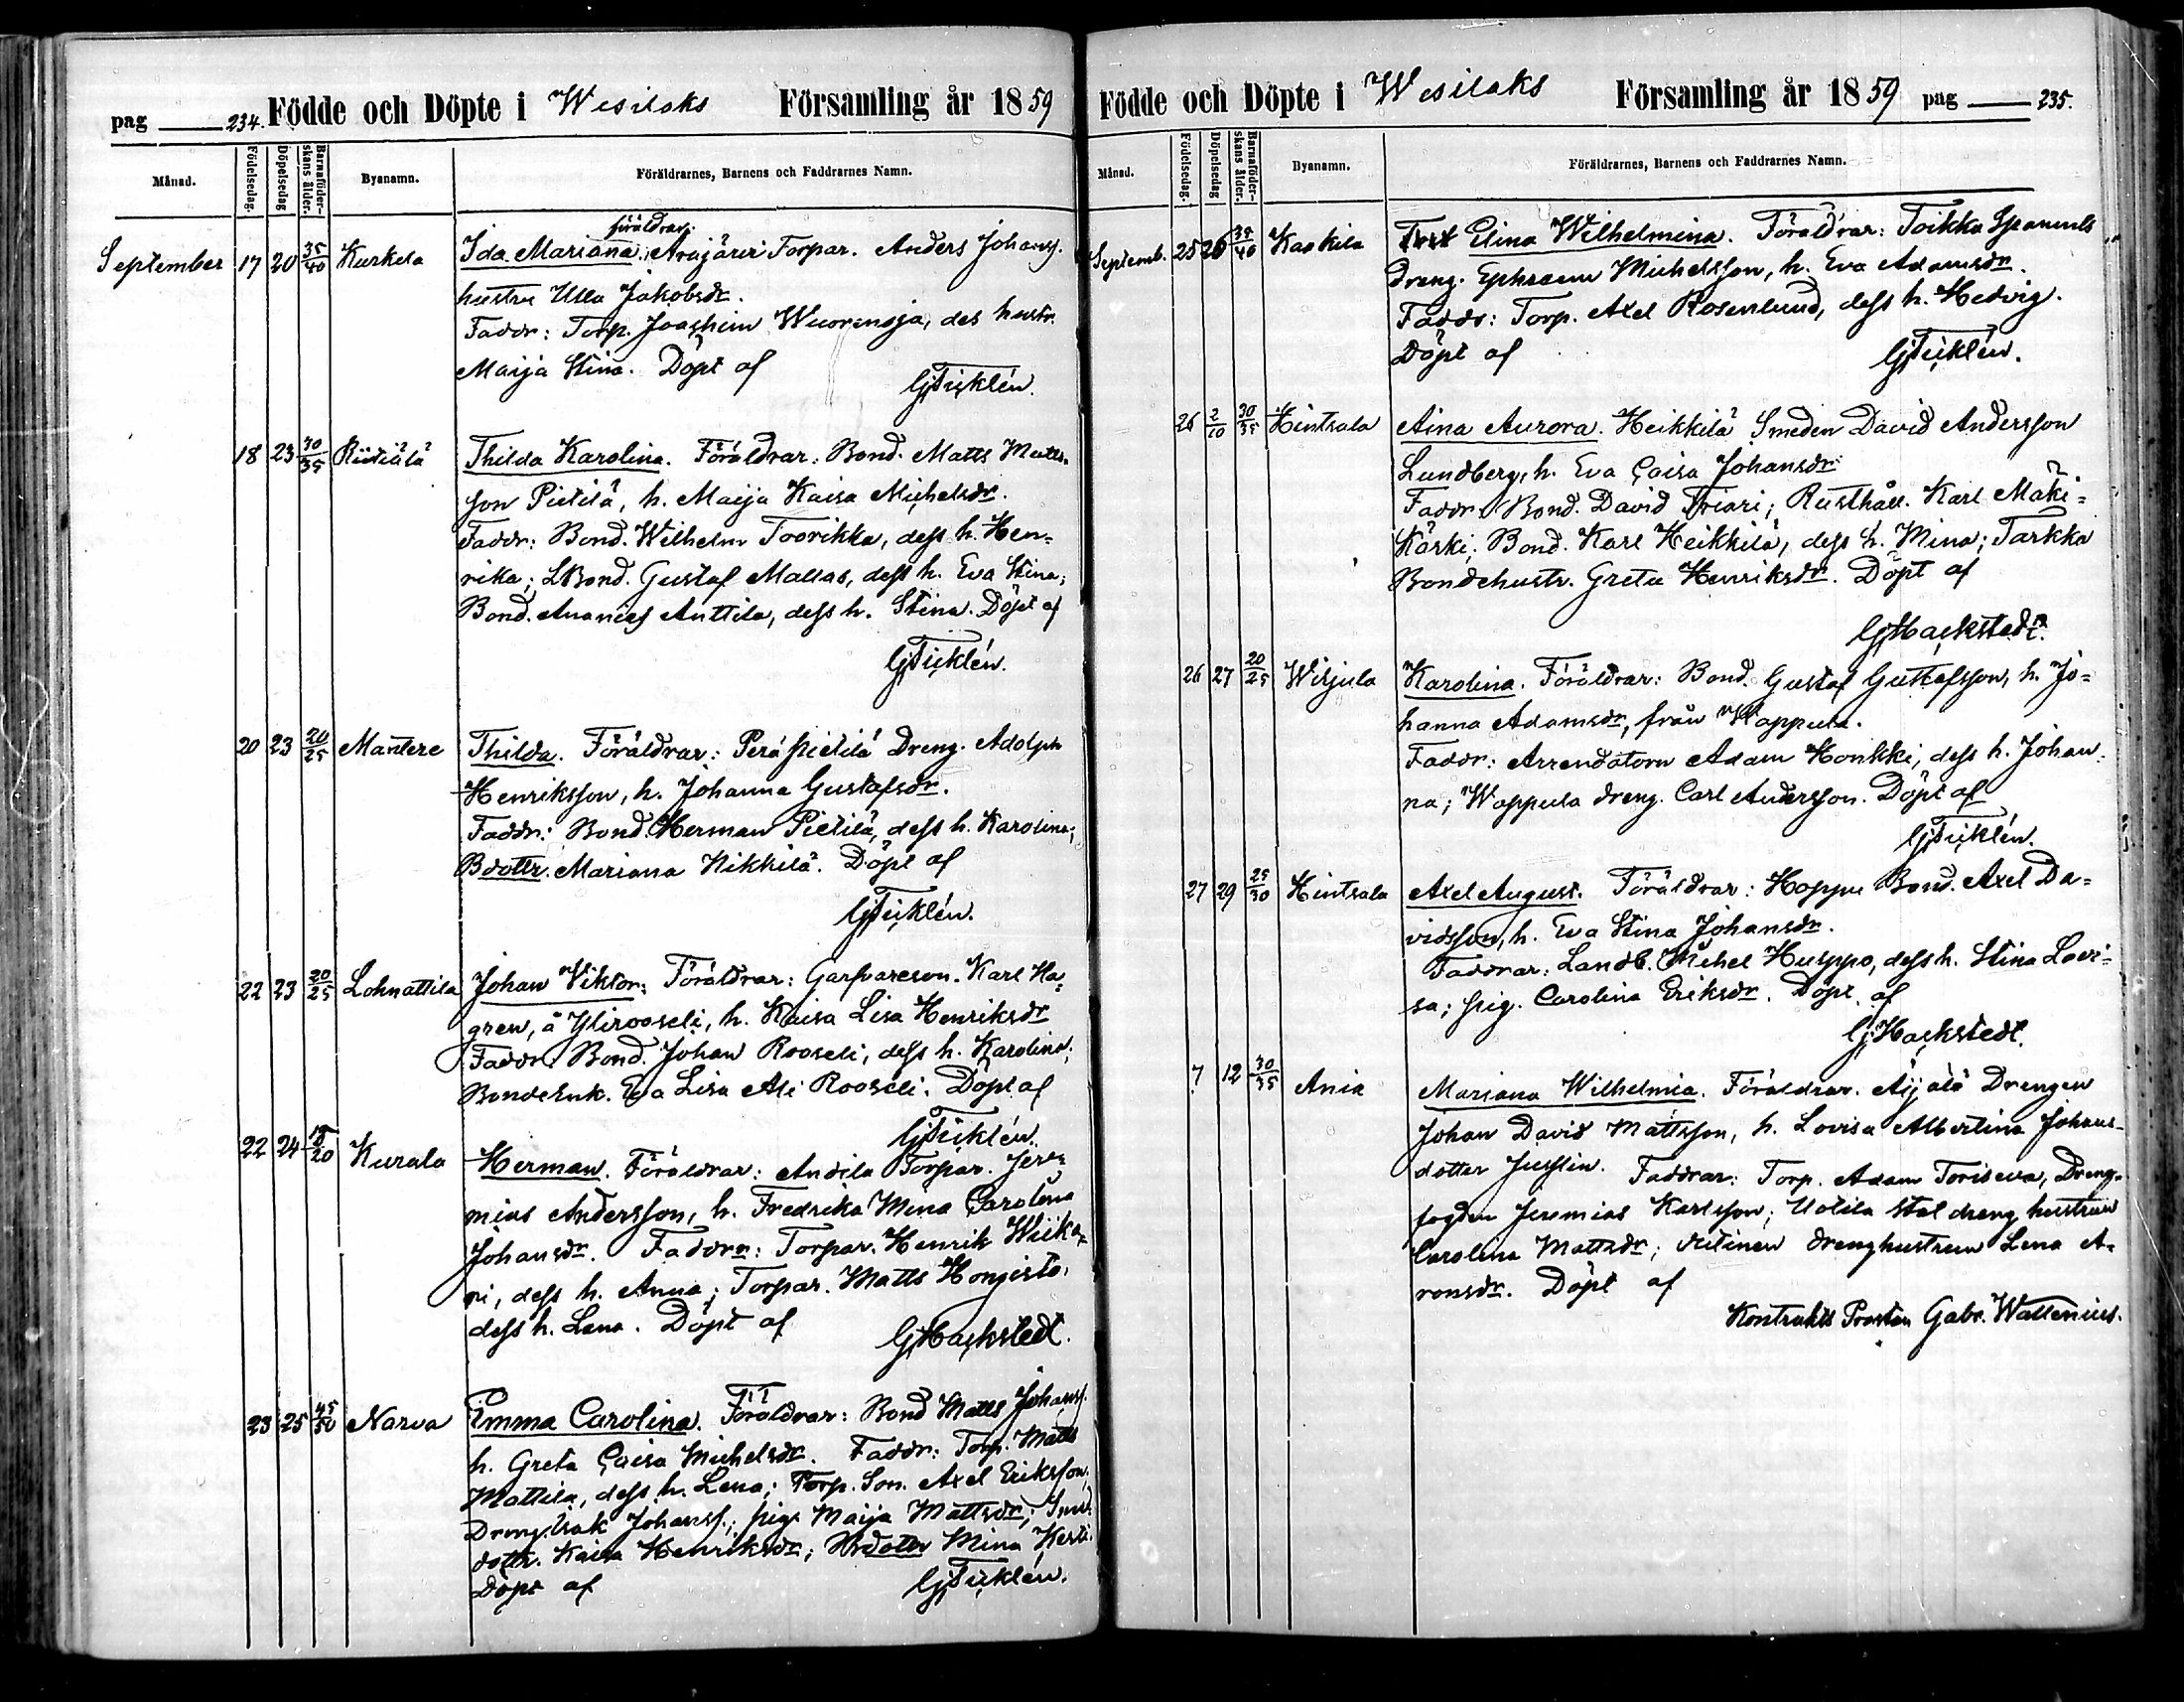 pag 234. Födde och Döpte i Wesilaks Församling år 1859
Månad. Födelsedag. Döpelsedag Barnaföderskans ålder. Byanamn. Föräldrarnes, Barnens och Faddrarnes Namn.
föräldrar:
September 17 20 35/40 Kurkela Ida Mariana. Arajärvi Torpar. Anders Johanss.
hustru Ulla Jakobsdr.
Faddr: Torp. Joachim Wuorensja, des hustr.
Maija Stina. Döpt af
GjFicklén.
18 23 30/35 Riitiälä Thilda Karolina. Föräldrar: Bond. Matts Matts-
son Pietilä, h. Maija Kaisa Michelsdr.
Faddr: Bond. Wilhelm Toorikka, dess h. Hen=
rika; LBond. Gustaf Mallas, dess h. Eva Stina;
Bond. Ananias Anttila, dess h. Stina. Döpt af
GjFicklén.
20 23 20/25 Mantere Thilda. Föräldrar: Perä Pietilä Dreng. Adolph
Henriksson, h. Johanna Gustafsdr.
Faddr: Bond. Herman Pietilä, dess h. Karolina;
Bdottr. Mariana Nikkilä. Döpt af
GjFicklén.
22 23 20/25 Lohnattila Johan Viktor: Föräldrar: Garfvareson. Karl Ha=
gren, å Ylirooseli, h. Kaisa Lisa Henriksdr
Faddr: Bond. Johan Rooseli, dess h. Karolina;
BondeEnk. Eva Lisa Ali Rooseli. Döpt af
GjFicklén.
22 24 18/20 Kurala Herman. Föräldrar: Andila Torpar. Jere=
mias Andersson, h. Fredrika Mina Carolina
Johansdr. Faddrr: Torpar. Henrik Wiika=
ri, dess h. Anna; Torpar. Matts Hongisto,
dess h. Lena. Döpt af
GjHackstedt.
23 25 45/50 Narva Emma Carolina. Föräldrar: Bond Matts Johanss.
h. Greta Caisa Michelsdr. Faddr: Torp. Matts
Mattila, dess h. Lena; Torp. Son. Axel Eriksson,
Dreng. Isak Johanss.; pig. Maija Mattsdr; Smed
dottr. Kaisa Henriksdr; Mina
Döpt af GjFicklén.
Födde och Döpte i Wesilaks Församling år 1859 pag 235.
Månad. Födelsedag. Döpelsedag Barnaföderskans ålder. Byanamn. Föräldrarnes, Barnens och Faddrarnes Namn.
Septemb. 25 26 35/40 Kaakila Elina Wilhelmina. Föräldrar: Toikka Spanmåls
dreng. Ephraem Michelsson, h. Eva Adamsdr.
Faddr: Torp. Axel Rosenlund, dess h. Hedvig.
Döpt af GjFicklén.
26 2/10 30/35 Hintsala Aina Aurora. Heikkilä Smeden David Andersson
Lundberg, h. Eva Caisa Johansdr
Faddr: Bond. David Friari; Rusthåll. Karl Mäki=
Käski; Bond. Karl Heikkilä, dess h. Mina; Tarkka
Bondehustr. Greta Henriksdr. Döpt af
GjHackstedt.
26 27 20/25 Wirjula Karolina. Föräldrar: Bond. Gustaf Gustafsson, h. Jo=
hanna Adamsdr, från Wappula.
Faddr: Arrendatorn Adam Honkki, dess h. Johan-
na; Wappula dreng. Carl Andersson. Döpt af
GjFicklén.
27 29 25/30 Hintsala Axel August. Föräldrar: Hoppu Bond. Axel Da=
vidsson, h. Eva Stina Johansdr.
Faddrar: Landb. Mihel Huippo, dess h. Stina Lovi=
sa; pig. Carolina Eriksdr. Döpt af
GjHackstedt.
7 12 30/35 Ania Mariana Wilhelmia. Föräldrar. Äijälä Drengen
Johan David Mattsson, h. Lovisa Albertina Johans-
dotter Jusslin. Faddrar: Torp. Adam Toriseva, Dreng-
fogden Jeremias Karlsson; Uotila Stal dreng hustrun
Carolina Mattsdr; drenghustrun Lena A-
ronsdr. Döpt af
Kontrakts Prosten Gabr. Wallenius.